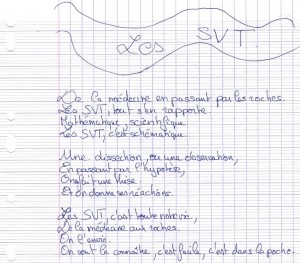 Les SVT.
De la médecine en passant par les roches.
Les SVT, tout s'en rapporte.
Mathématique, scientifique
Les SVT, c'est schématique.
Une dissection, ou une observation,
En passant par l'hypotèse,
On fait une thèse.
Et on donne ses réactions.
Les SVT, c'est toute notre vie,
D la médecine aux roches.
On l'envie.
On veut la connaître, c'est facile, c'est dans la poche.